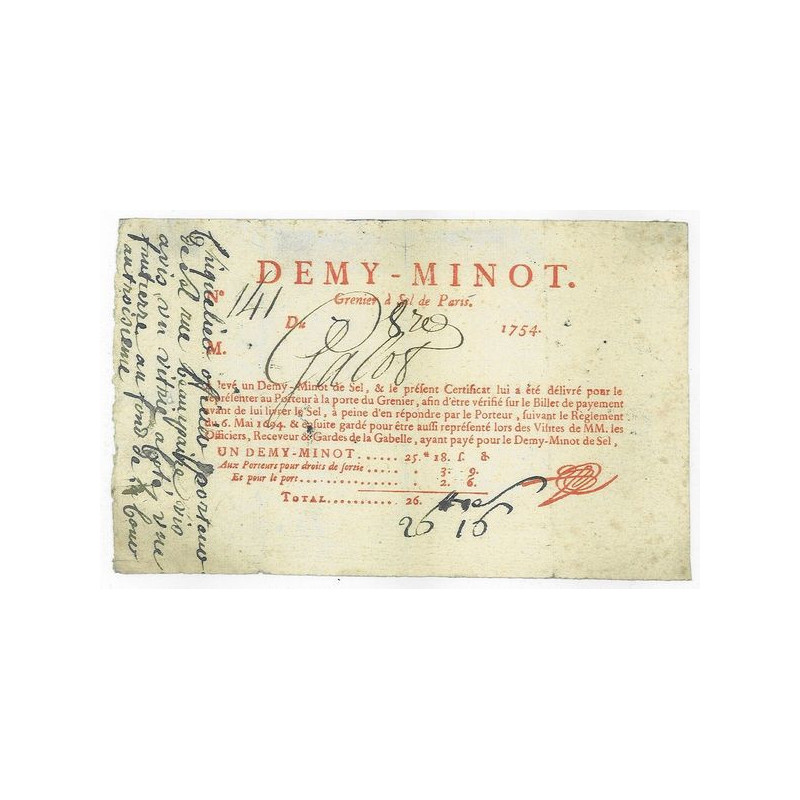 DEMY-MINOT.
Nº 141 Grenier à Sel de Paris.
Du 8re 1754.
M.
levé un Demy-Minot de Sel, & le préſent Certificat lui a été délivré pour le
repréſenter au Porteur à la porte du Grenier, afin d'être vérifié ſur le Billet de payement
avant de lui livrer le Sel, à peine d'en répondre par le Porteur, ſuivant le Règlement
du 6. Mai 1694. & enſuite gardé pour être auſſi repréſenté lors des Viſites de MM. les
Officiers, Receveur & Gardes de la Gabelle, ayant payé pour le Demy-Minot de Sel,
UN DEMY-MINOT...... 25.tt 18. ſ. &
Aux Porteurs pour droits de ſortie.... 3. 9.
Et pour le port............ 2. 6.
TOTAL........... 26.
26 16
officier porteur
de sel rue Beaurepaire vis
avis un vitrie a coté, une
fruitiere au fond de la Cour
au troisieme